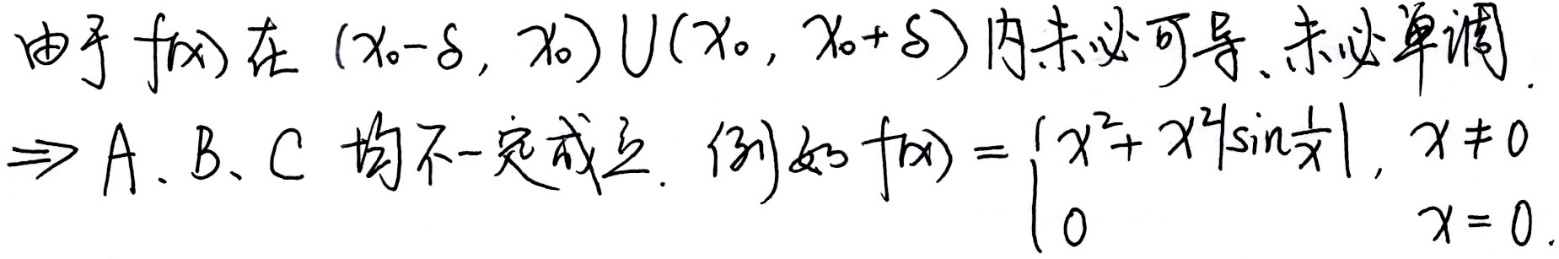 由于 f(x) 在 (x₀-δ, x₀)∪(x₀, x₀+δ) 内未必可导、未必单调.
⇒ A、B、C 均不一定成立. 例如 f(x) = { x²+x²|sin 1/x|, x≠0
0 x=0.